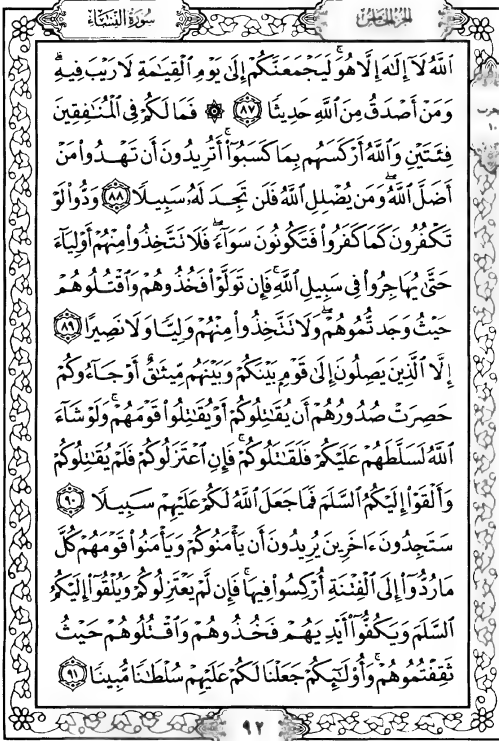 سُورَةُ النِّسَاءِ
الجزء الخامس
ٱللَّهُ لَآ إِلَٰهَ إِلَّا هُوَ ۚ لَيَجۡمَعَنَّكُمۡ إِلَىٰ يَوۡمِ ٱلۡقِيَٰمَةِ لَا رَيۡبَ فِيهِ ۗ
وَمَنۡ أَصۡدَقُ مِنَ ٱللَّهِ حَدِيثٗا ٨٧ ۞ فَمَا لَكُمۡ فِي ٱلۡمُنَٰفِقِينَ
فِئَتَيۡنِ وَٱللَّهُ أَرۡكَسَهُم بِمَا كَسَبُوٓاْ ۚ أَتُرِيدُونَ أَن تَهۡدُواْ مَنۡ
أَضَلَّ ٱللَّهُ ۖ وَمَن يُضۡلِلِ ٱللَّهُ فَلَن تَجِدَ لَهُۥ سَبِيلٗا ٨٨ وَدُّواْ لَوۡ
تَكۡفُرُونَ كَمَا كَفَرُواْ فَتَكُونُونَ سَوَآءٗ ۖ فَلَا تَتَّخِذُواْ مِنۡهُمۡ أَوۡلِيَآءَ
حَتَّىٰ يُهَاجِرُواْ فِي سَبِيلِ ٱللَّهِ ۚ فَإِن تَوَلَّوۡاْ فَخُذُوهُمۡ وَٱقۡتُلُوهُمۡ
حَيۡثُ وَجَدتُّمُوهُمۡ ۖ وَلَا تَتَّخِذُواْ مِنۡهُمۡ وَلِيّٗا وَلَا نَصِيرًا ٨٩
إِلَّا ٱلَّذِينَ يَصِلُونَ إِلَىٰ قَوۡمِۭ بَيۡنَكُمۡ وَبَيۡنَهُم مِّيثَٰقٌ أَوۡ جَآءُوكُمۡ
حَصِرَتۡ صُدُورُهُمۡ أَن يُقَٰتِلُوكُمۡ أَوۡ يُقَٰتِلُواْ قَوۡمَهُمۡ ۚ وَلَوۡ شَآءَ
ٱللَّهُ لَسَلَّطَهُمۡ عَلَيۡكُمۡ فَلَقَٰتَلُوكُمۡ ۚ فَإِنِ ٱعۡتَزَلُوكُمۡ فَلَمۡ يُقَٰتِلُوكُمۡ
وَأَلۡقَوۡاْ إِلَيۡكُمُ ٱلسَّلَمَ فَمَا جَعَلَ ٱللَّهُ لَكُمۡ عَلَيۡهِمۡ سَبِيلٗا ٩٠
سَتَجِدُونَ ءَاخَرِينَ يُرِيدُونَ أَن يَأۡمَنُوكُمۡ وَيَأۡمَنُواْ قَوۡمَهُمۡ كُلَّ
مَا رُدُّوٓاْ إِلَى ٱلۡفِتۡنَةِ أُرۡكِسُواْ فِيهَا ۚ فَإِن لَّمۡ يَعۡتَزِلُوكُمۡ وَيُلۡقُوٓاْ إِلَيۡكُمُ
ٱلسَّلَمَ وَيَكُفُّوٓاْ أَيۡدِيَهُمۡ فَخُذُوهُمۡ وَٱقۡتُلُوهُمۡ حَيۡثُ
ثَقِفۡتُمُوهُمۡ ۚ وَأُوْلَٰٓئِكُمۡ جَعَلۡنَا لَكُمۡ عَلَيۡهِمۡ سُلۡطَٰنٗا مُّبِينٗا ٩١
٩٢